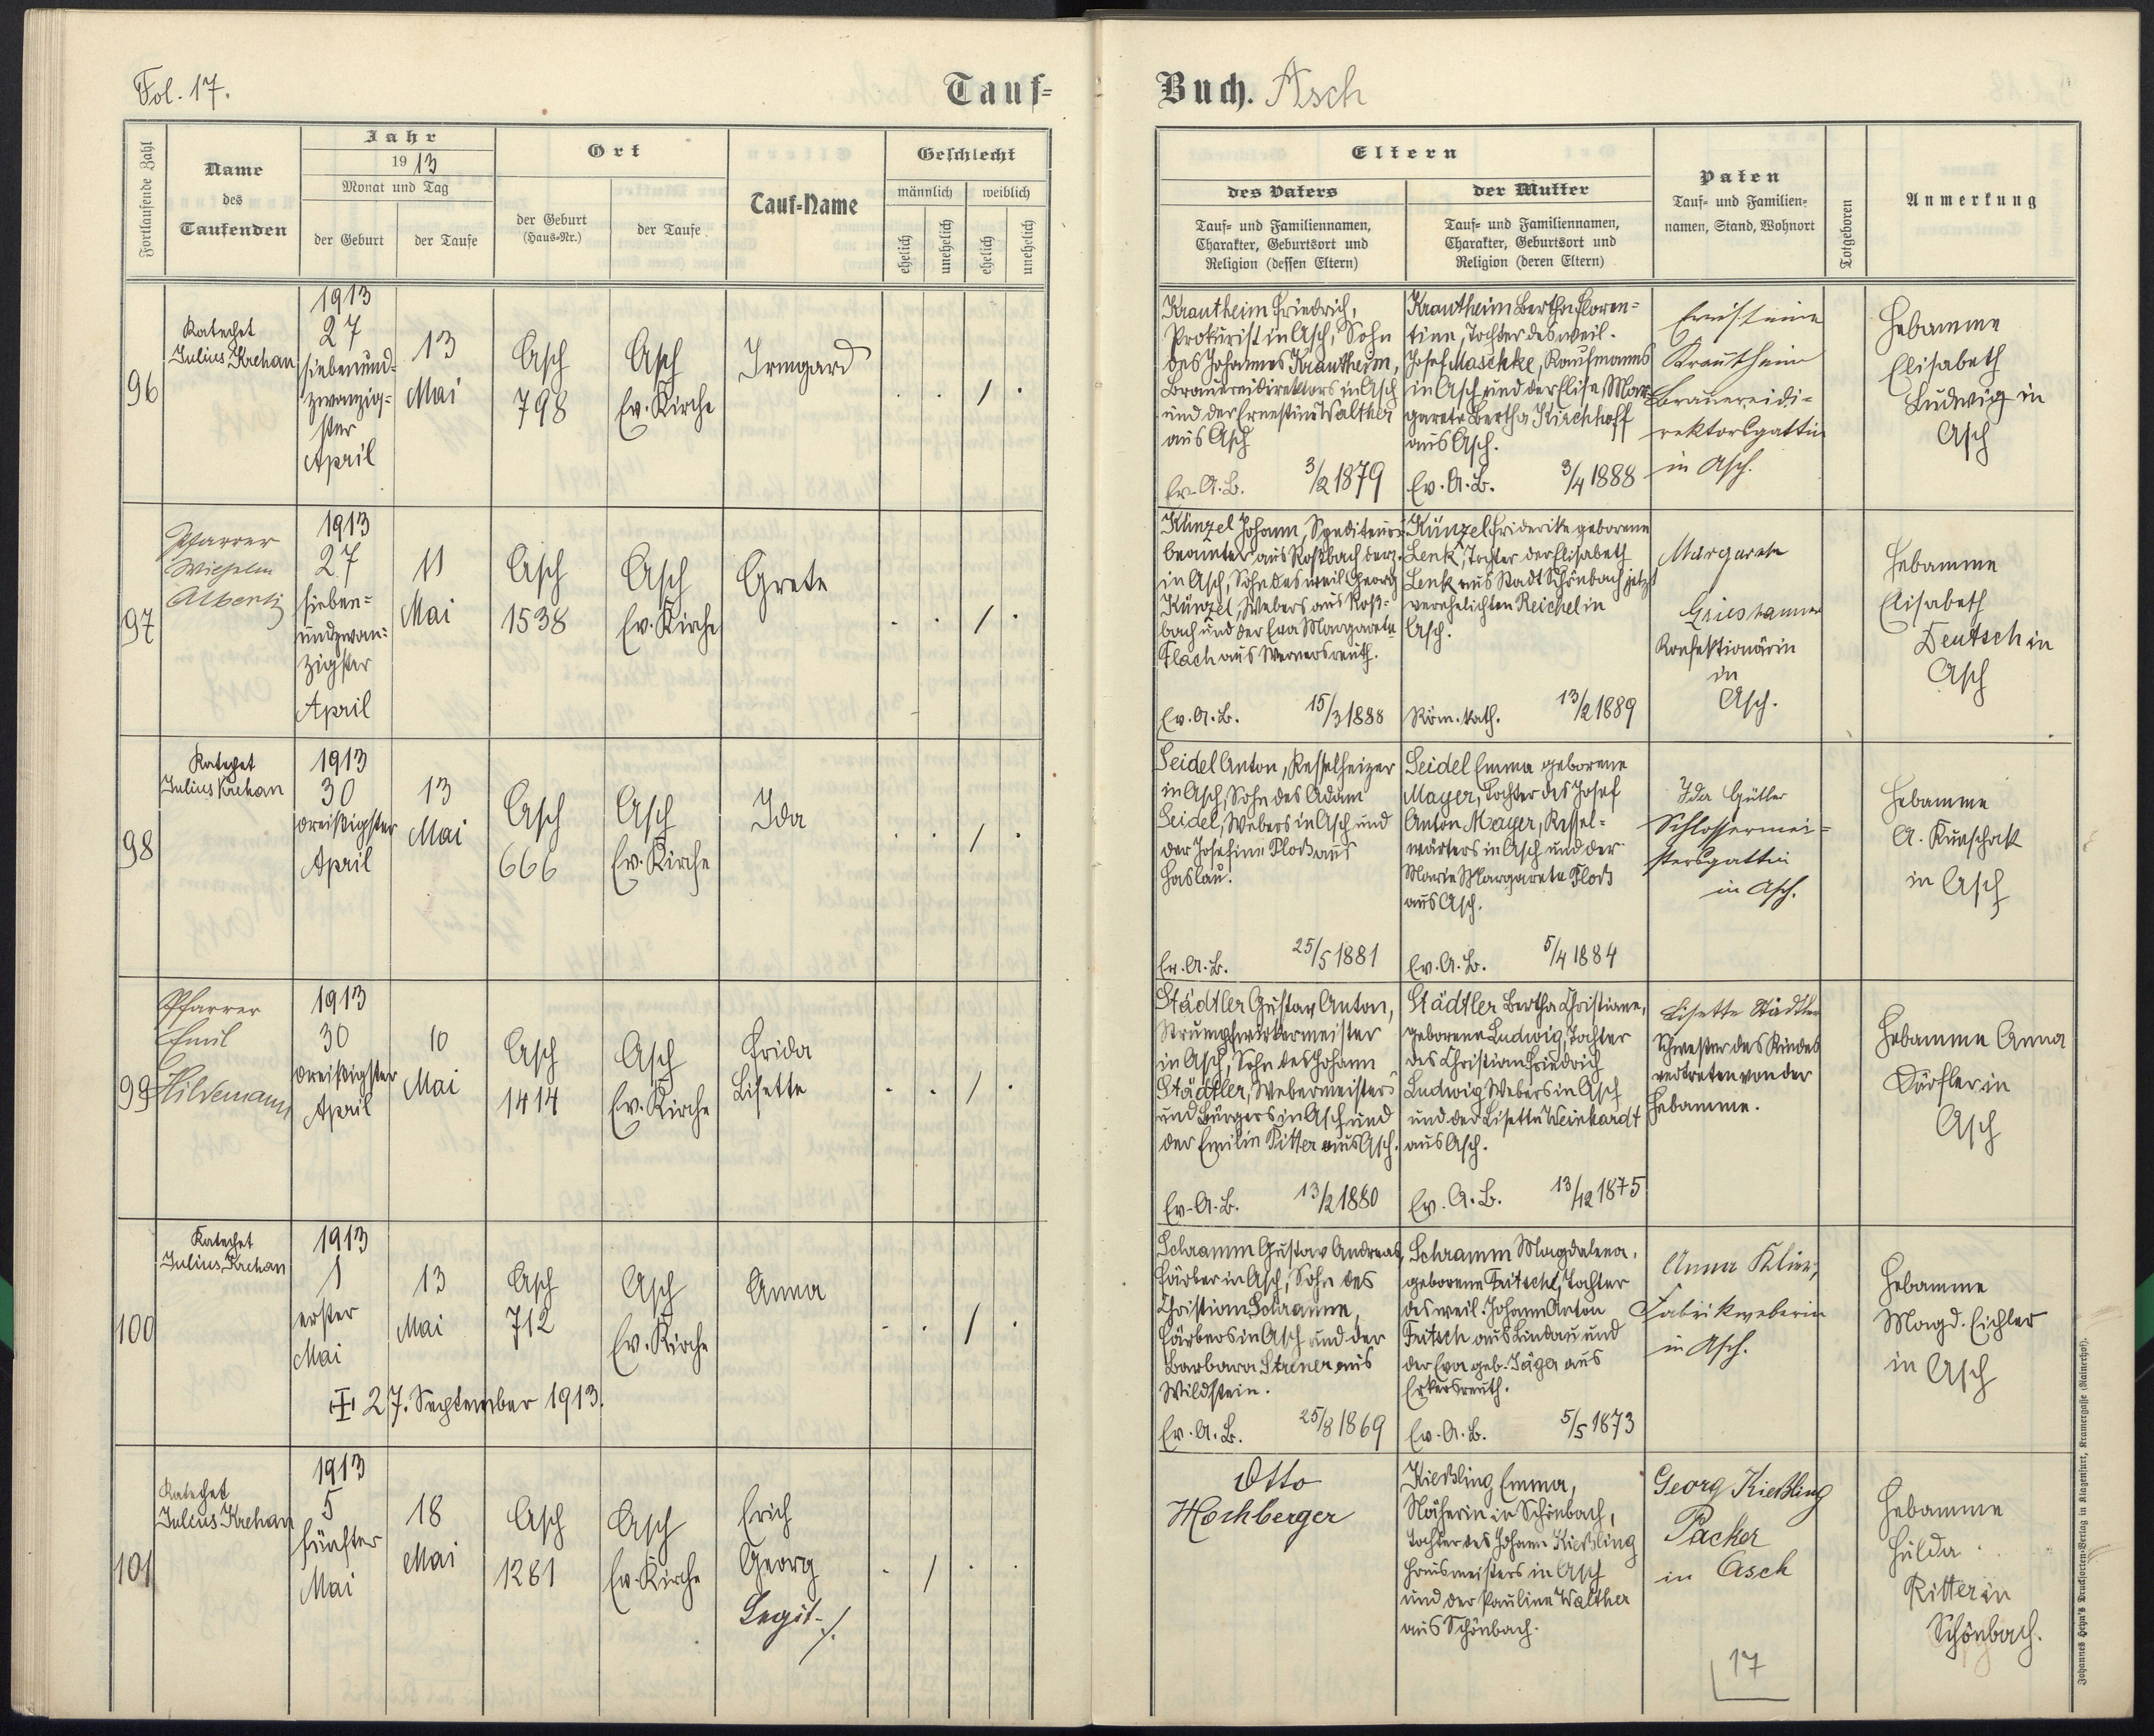 Fol. 17.
Tauf-
Buch. Asch
Fortlaufende Zahl
Name
des
Taufenden
Jahr
1913
Monat und Tag
der Geburt
der Taufe
Ort
der Geburt
(Haus-Nr.)
der Taufe
Tauf-Name
Geschlecht
männlich
weiblich
ehelich
unehelich
ehelich
unehelich
Eltern
des Vaters
Tauf- und Familiennamen,
Charakter, Geburtsort und
Religion (dessen Eltern)
der Mutter
Tauf- und Familiennamen,
Charakter, Geburtsort und
Religion (deren Eltern)
Paten
Tauf- und Familien-
namen, Stand, Wohnort
Totgeboren
Anmerkung
96
Katechet
Julius Krehan
1913
27
siebenund-
zwanzig-
ster
April
13
Mai
Asch
798
Asch
Ev. Kirche
Irmgard
. . / .
Krautheim Friedrich,
Prokurist in Asch, Sohn
des Johannes Krautheim,
Brauereidirektors in Asch
und der Ernestine Walther
aus Asch
Ev. A. B. 3/2 1879
Krautheim Bertha Floren-
tine, Tochter des weil.
Josef Maschke, Kaufmanns
in Asch und der Elise Mar-
garete Bertha Kirchhoff
aus Asch.
Ev. A. B. 3/4 1888
Ernestine
Krautheim
Brauereidi-
rektorsgattin
in Asch.
Hebamme
Elisabeth
Ludwig in
Asch
97
Pfarrer
Wilhelm
Alberti
1913
27
sieben-
undzwan-
zigster
April
11
Mai
Asch
1538
Asch
Ev. Kirche
Grete
. . / .
Künzel Johann, Spediteurs-
beamter aus Roßbach derz.
in Asch, Sohn des weil. Georg
Künzel, Webers aus Roß-
bach und der Eva Margarete
Flach aus Wernersreuth.
Ev. A. B. 15/3 1888
Künzel Friderike geborene
Lenk, Tochter der Elisabeth
Lenk aus Stadt Schönbach jetzt
verehelichten Reichel in
Asch.
Röm. kath. 13/2 1889
Margarete
Grieshammer
Konfektionärin
in
Asch.
Hebamme
Elisabeth
Deutsch in
Asch
98
Katechet
Julius Krehan
1913
30
dreißigster
April
13
Mai
Asch
666
Asch
Ev. Kirche
Ida
. . / .
Seidel Anton, Kesselheizer
in Asch, Sohn des Adam
Seidel, Webers in Asch und
der Josefine Ploß aus
Haslau.
Ev. A. B. 25/5 1881
Seidel Emma geborene
Mayer, Tochter des Josef
Anton Mayer, Kessel-
wärters in Asch und der
Marie Margarete Ploß
aus Asch.
Ev. A. B. 5/4 1884
Ida Gütler
Schlossermei-
stersgattin
in Asch.
Hebamme
A. Kunschak
in Asch
99
Pfarrer
Emil
Hildemann
1913
30
dreißigster
April
10
Mai
Asch
1414
Asch
Ev. Kirche
Frida
Lisette
. . / .
Städtler Gustav Anton,
Strumpfwirkermeister
in Asch, Sohn des Johann
Städtler, Webermeisters
und Bürgers in Asch und
der Emilie Ritter aus Asch.
Ev. A. B. 13/2 1880
Städtler Bertha Christiane,
geborene Ludwig, Tochter
des Christian Friedrich
Ludwig Webers in Asch
und der Lisette Weinhardt
aus Asch.
Ev. A. B. 13/12 1875
Lisette Städtler
Schwester des Kindes
vertreten von der
Hebamme.
Hebamme Anna
Dörfler in
Asch
100
Katechet
Julius Krehan
1913
1
erster
Mai
13
Mai
Asch
712
Asch
Ev. Kirche
Anna
. . / .
27. September 1913.
Schramm Gustav Andreas,
Färber in Asch, Sohn des
Christian Schramm,
Färbers in Asch und der
Barbara aus
Wildstein.
Ev. A. B. 25/8 1869
Schramm Magdalena,
geborene Fritsch, Tochter
des weil. Johann Anton
Fritsch aus Lindau und
der Eva geb. Jäger aus
Erkersreuth.
Ev. A. B. 5/5 1873
Anna Klier,
Fabrikweberin
in Asch.
Hebamme
Magd. Eichler
in Asch
101
Katechet
Julius Krehan
1913
5
fünfter
Mai
18
Mai
Asch
1281
Asch
Ev. Kirche
Erich
Georg
Legit. ./.
. / . .
Otto
Hochberger
Kießling Emma,
Näherin in Schönbach,
Tochter des Johann Kießling
Hausmeisters in Asch
und der Pauline Walther
aus Schönbach.
Georg Kießling
Packer
in Asch
Hebamme
Hulda
Ritter in
Schönbach.
17
Johannes Heyn's Drucksorten-Verlag in Klagenfurt, Kramergasse (Rainerhof).